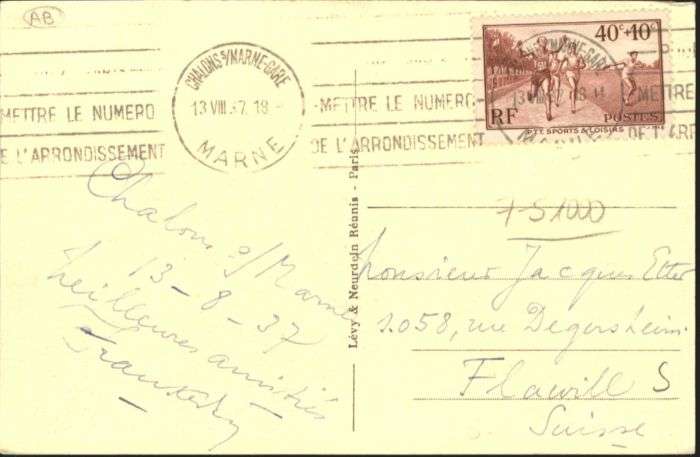 AB
CHALONS S/MARNE-GARE
13 VIII 37. 18 -
MARNE
METTRE LE NUMERO
DE L'ARRONDISSEMENT
METTRE LE NUMERO
DE L'ARRONDISSEMENT
METTRE
DE L'ARR
40c+10c
RF
POSTES
P.T.T. SPORTS & LOISIRS
Châlons s/Marne
13-8-37
Meilleures amitiés
Lévy & Neurdein Réunis - Paris
Monsieur Jacques Etter
1.058, rue Degersheim
Flawill S
Suisse